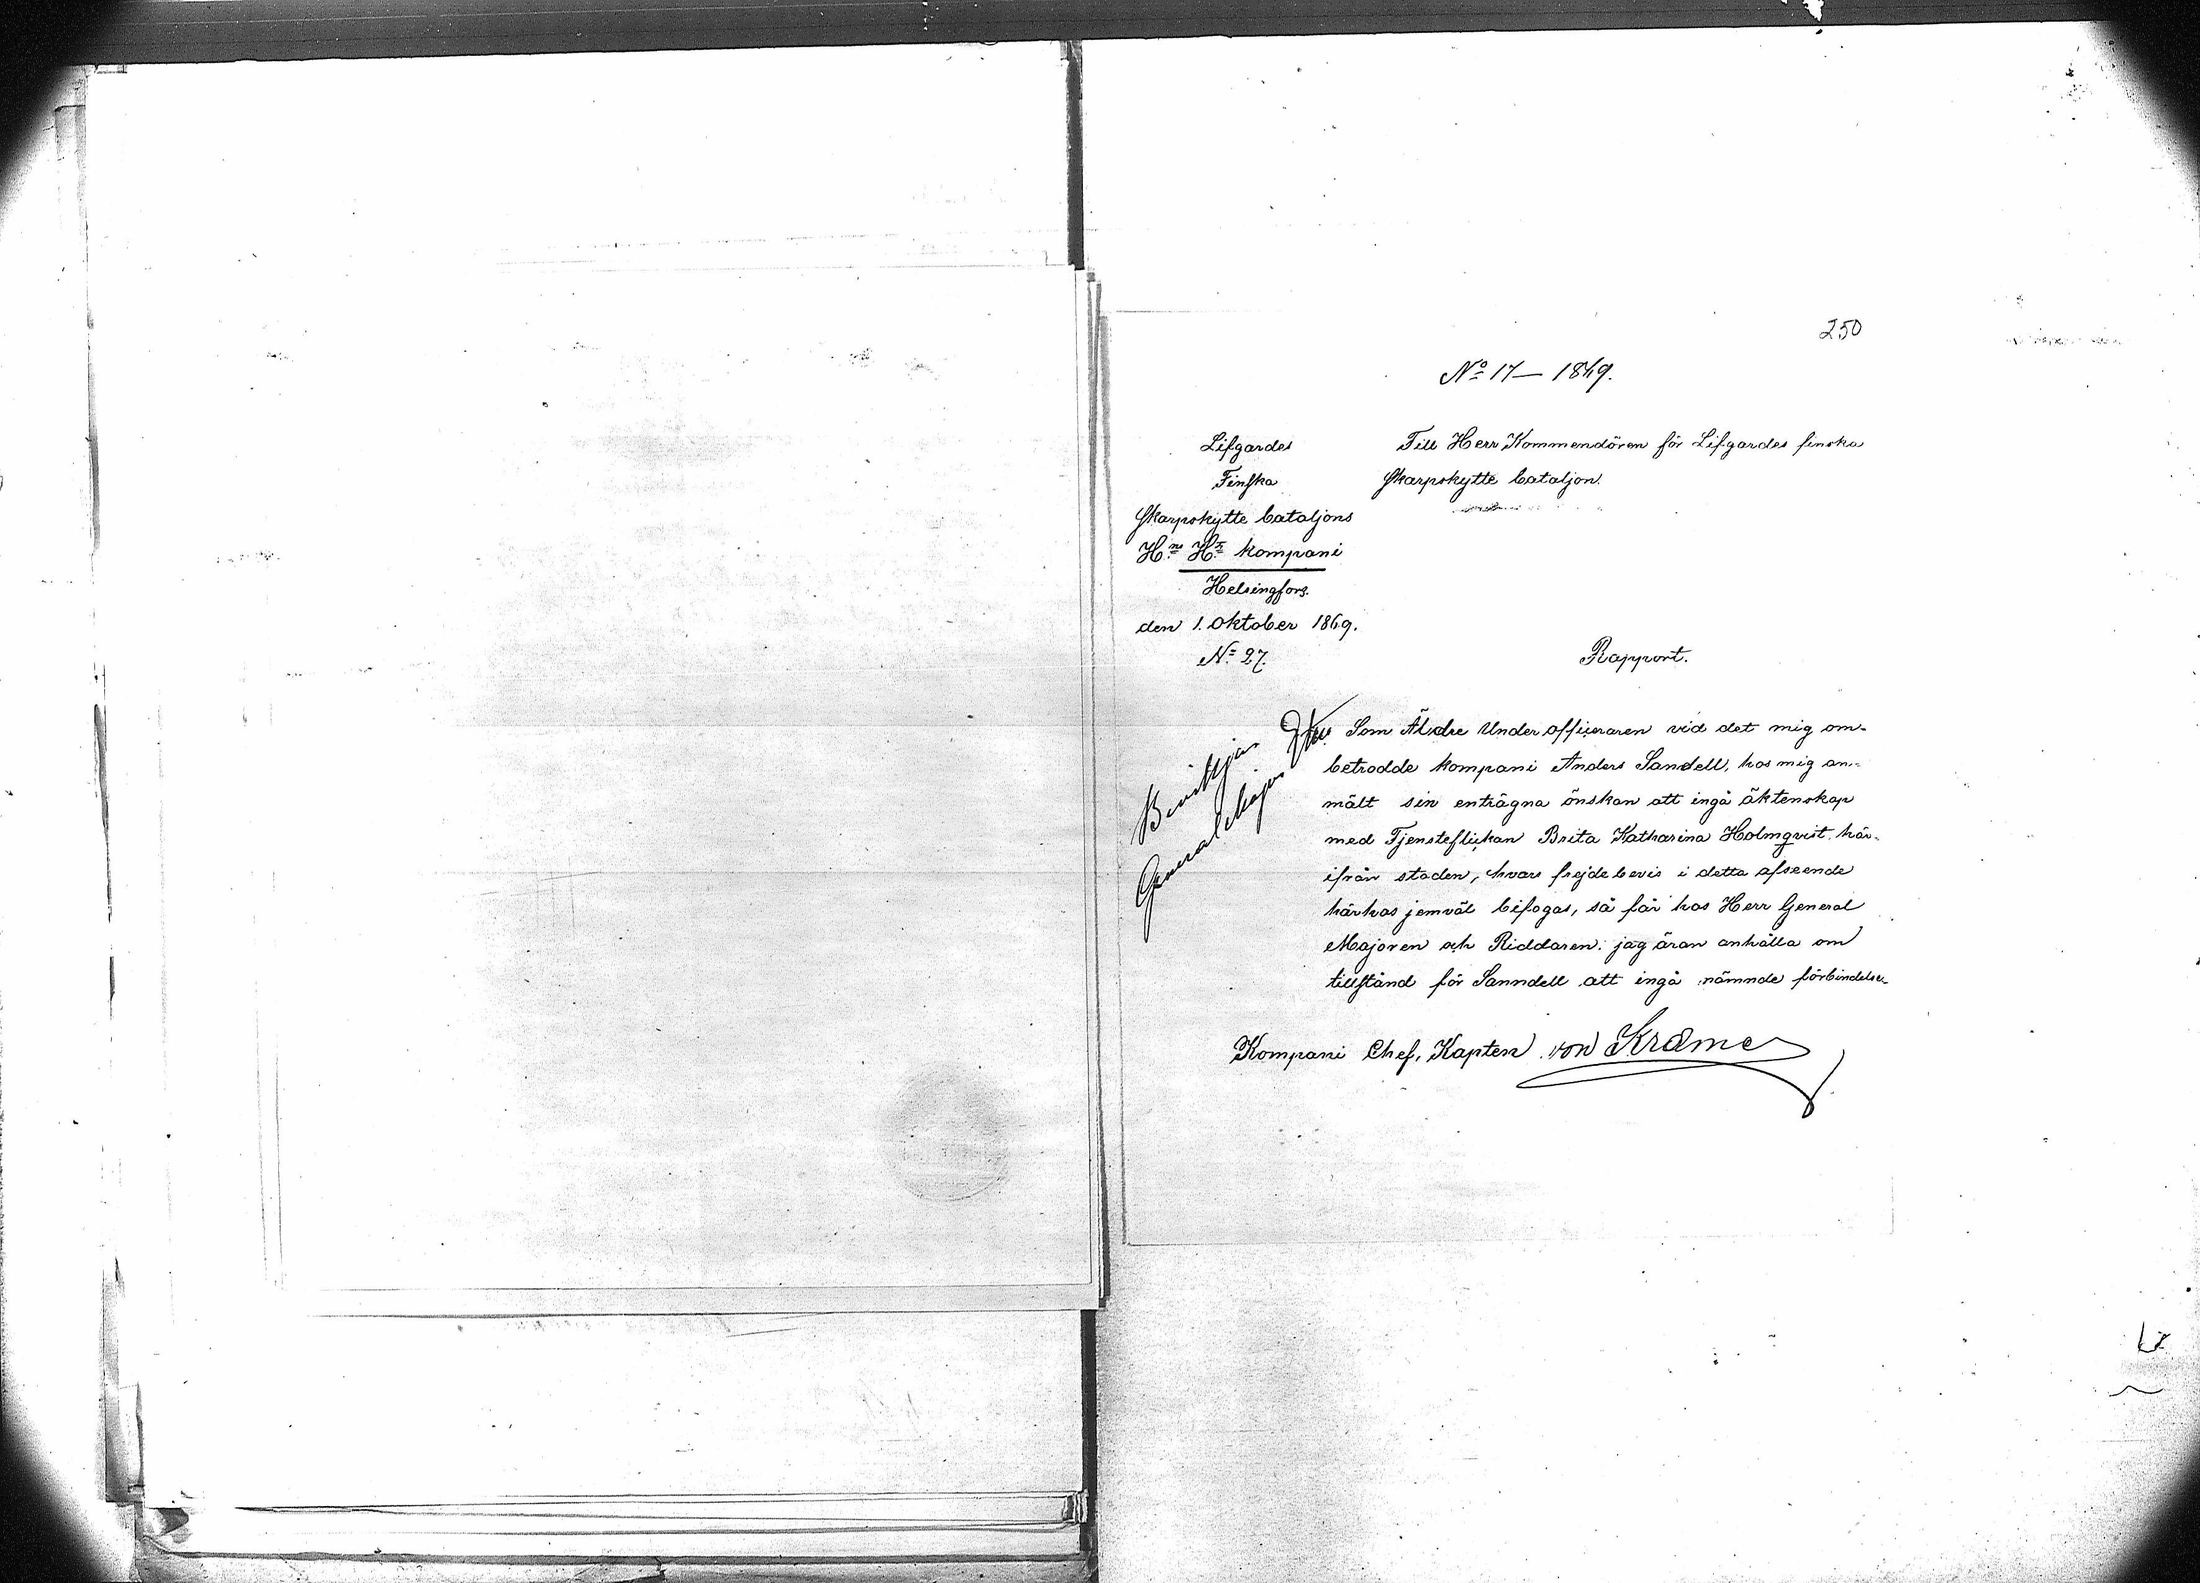 250
No 17 — 1869.
Lifgardes
Finska
Skarpskytte bataljons
Hns Hts kompani
Helsingfors.
den 1. Oktober 1869.
No 27.
Till Herr Kommendören för Lifgardes finska
Skarpskytte bataljon.
Rapport.
Beviljas
General Major
Som Äldre Underofficeraren vid det mig om-
betrodde kompani Anders Sandell, hos mig an-
mält sin enträgna önskan att ingå äktenskap
med Tjensteflickan Brita Katharina Holmqvist här-
ifrån staden, hvars frejdebevis i detta afseende
härhos jemväl bifogas, så får hos Herr General
Majoren och Riddaren jag äran anhålla om
tillstånd för Sanndell att ingå nämnde förbindelse.
Kompani Chef, Kapten von Kræmer